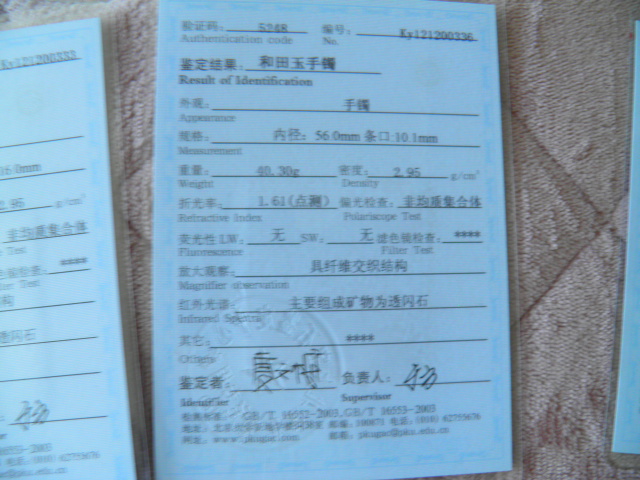 Ky121200333
16.0mm
2.95 g/cm³
非均质集合体
Test
检查： ****
Test
透闪石
验证码： 5248 编号： Ky121200336
Authentication code No.
鉴定结果： 和田玉手镯
Result of Identification
外观： 手镯
Appearance
规格： 内径：56.0mm 条口:10.1mm
Measurement
重量： 40.30g 密度： 2.95 g/cm³
Weight Density
折光率： 1.61(点测) 偏光检查： 非均质集合体
Refractive Index Polariscope Test
荧光性 LW： 无 SW： 无 滤色镜检查： ****
Fluorescence Filter Test
放大观察： 具纤维交织结构
Magnifier observation
红外光谱： 主要组成矿物为透闪石
Infrared
其它： ****
Others
鉴定者： 负责人：
Identifier Supervisor
检测标准： GB/T 16552-2003, GB/T 16553-2003
邮编：100871 电话：(010) 62755676
网址： 邮箱：